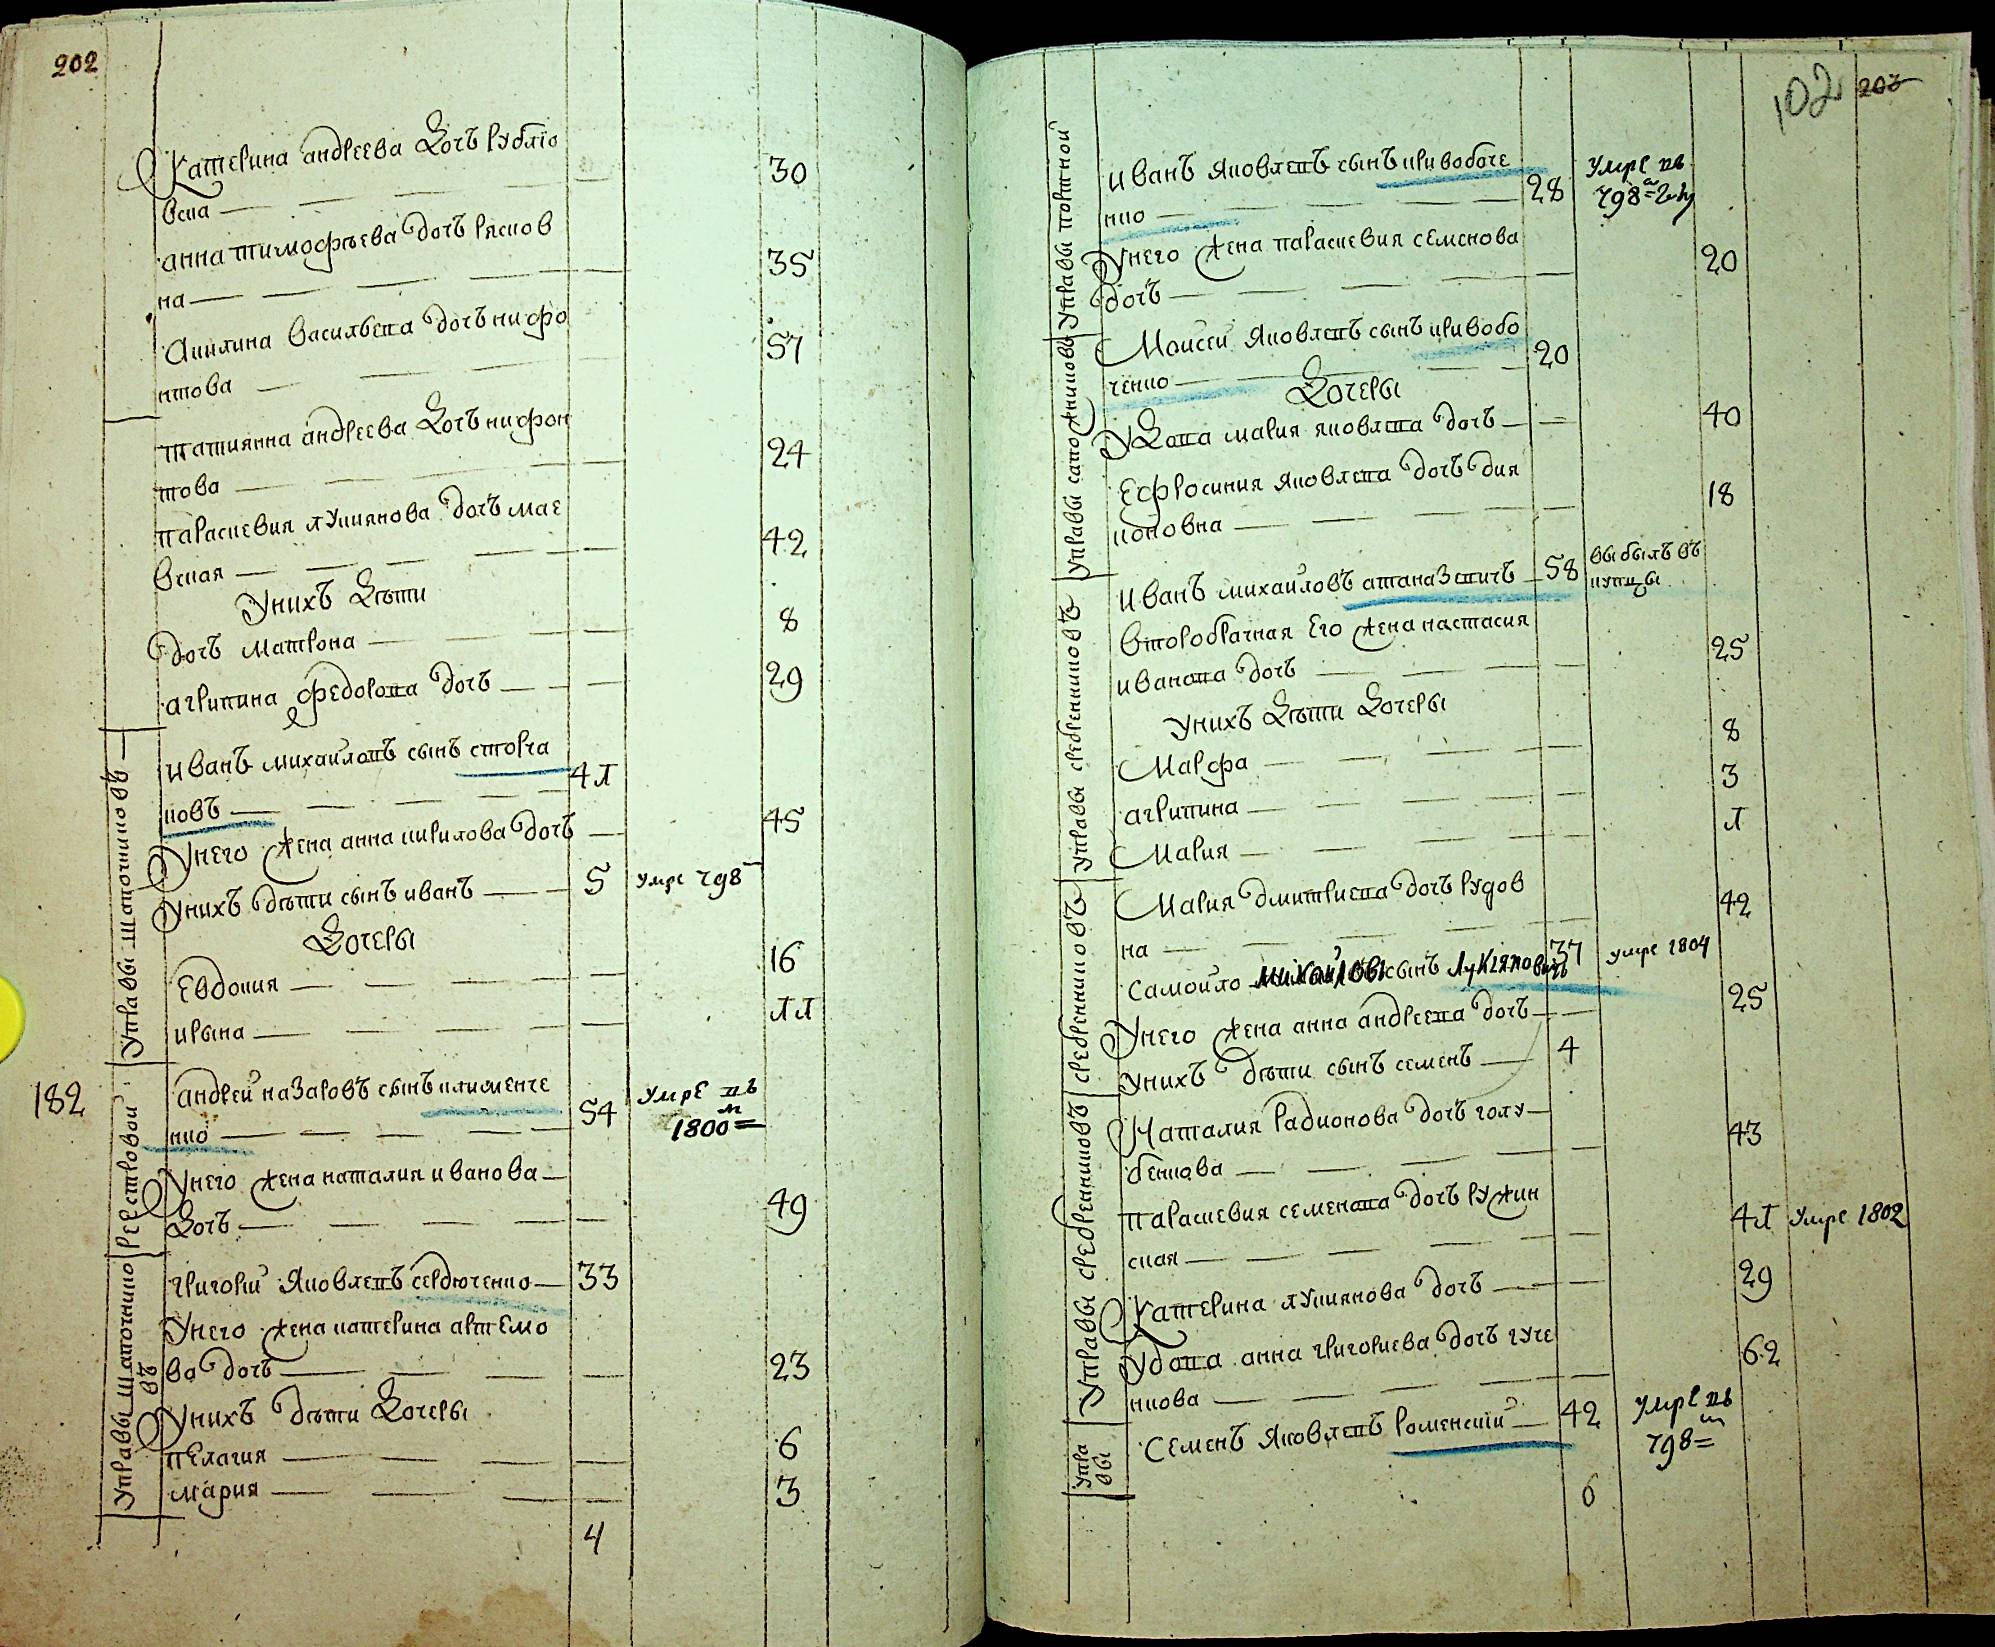 202
Катерина андреева Дочъ рубліо
вска 30
анна тимофѣева дочъ ряснов
на 35
Акилина васильева дочъ нифо
нтова 57
татиянна андреева Дочъ нифон
това 24
параскевия лукиянова дочъ мае
вская 42
Унихъ Дѣти
дочъ матрона 8
агрипина федорова дочъ 29
Управы шапочниковъ
иванъ михаиловъ сынъ сторча
ковъ 41
Унего жена анна кирилова дочъ 45
унихъ дѣти сынъ иванъ 5 умре 798
Дочеры
Евдокия 16
ирына 11
182
Реестровой
андрей назаровъ сынъ клименче
нко 54 Умре въ
м
1800=
Унего жена наталия иванова
Дочъ 49
Управы шапочнико
въ
григорий Яковлевъ сердюченко 33
Унего жена катерина артемо
ва дочъ 23
Унихъ дѣти Дочеры
пелагия 6
мария 3
4
102 203
Управы портной
иванъ Яковлевъ сынъ кривобоче
нко 28 Умре въ
798=
Унего жена параскевия семенова
дочъ 20
Управы сапожниковъ
Моисей Яковлевъ сынъ кривобо
ченко 20
Дочеры
УДова мария яковлева дочъ 40
Ефросиния яковлева дочъ дия
коновна 18
управы сребренниковъ
иванъ михаиловъ атаназевичъ 58 выбылъ въ
купцы
второбрачная Его жена настасия
иванова дочъ 25
Унихъ Дѣти Дочеры
Марфа 8
агрипина 3
Мария 1
сребренниковъ
Мария дмитриева дочъ рудов
на 42
самойло михайловъ сынъ Лукіяновичъ 37 умре 1804
Унего жена анна андреева дочъ 25
унихъ дѣти сынъ семенъ 4
Управы сребренниковъ
Наталия радионова дочъ голу
бенкова 43
параскевия семенова дочъ ружин
ская 41 Умре 1802
Катерина лукиянова дочъ 29
Удова анна григориева дочъ гуче
нкова 62
Упра
вы
Семенъ Яковлевъ роменский 42 умре въ
798=
6